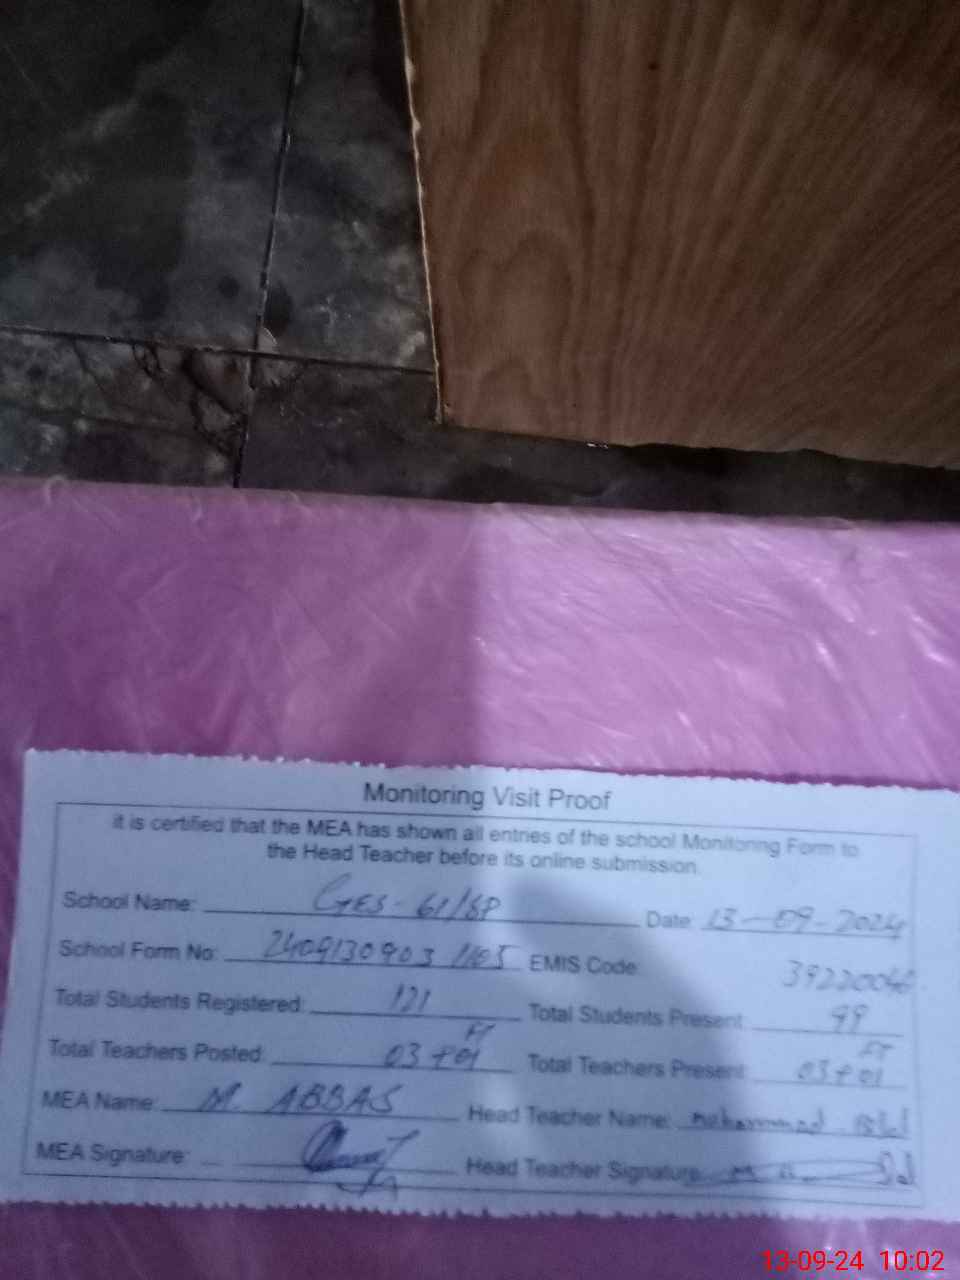 Monitoring Visit Proof
it is certified that the MEA has shown all entries of the school Monitoring Form to
the Head Teacher before its online submission.
School Name: GES - 61/SP Date: 13-09-2024
School Form No: 2409130903 EMIS Code:
Total Students Registered: 121 Total Students Present: 99
Total Teachers Posted: 03 + 01 Total Teachers Present: 03 + 01
MEA Name: M. ABBAS Head Teacher Name: Mohammad
MEA Signature: Head Teacher Signature
13-09-24 10:02